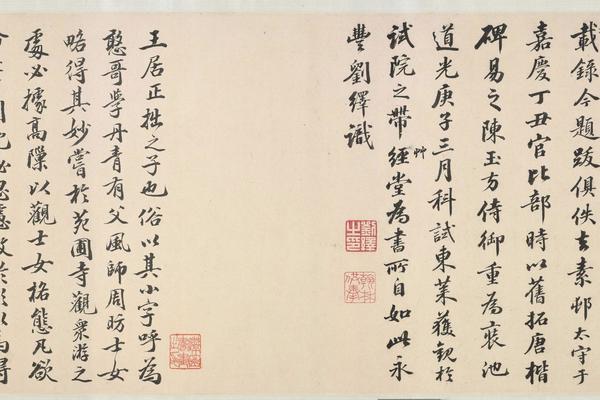 載錄今題跋俱佚去素邨太守于
嘉慶丁丑官比部時以舊拓唐楷
碑易之陳玉方侍御重為裝池
道光庚子三月科試東萊獲觀於
試院之帶經草堂為書所自如此永
豐劉繹識
王居正拙之子也俗以其小字呼為
憨哥學丹青有父風師周昉士女
略得其妙嘗於苑圃寺觀眾游之
處必據高隙以觀士女格態凡欲